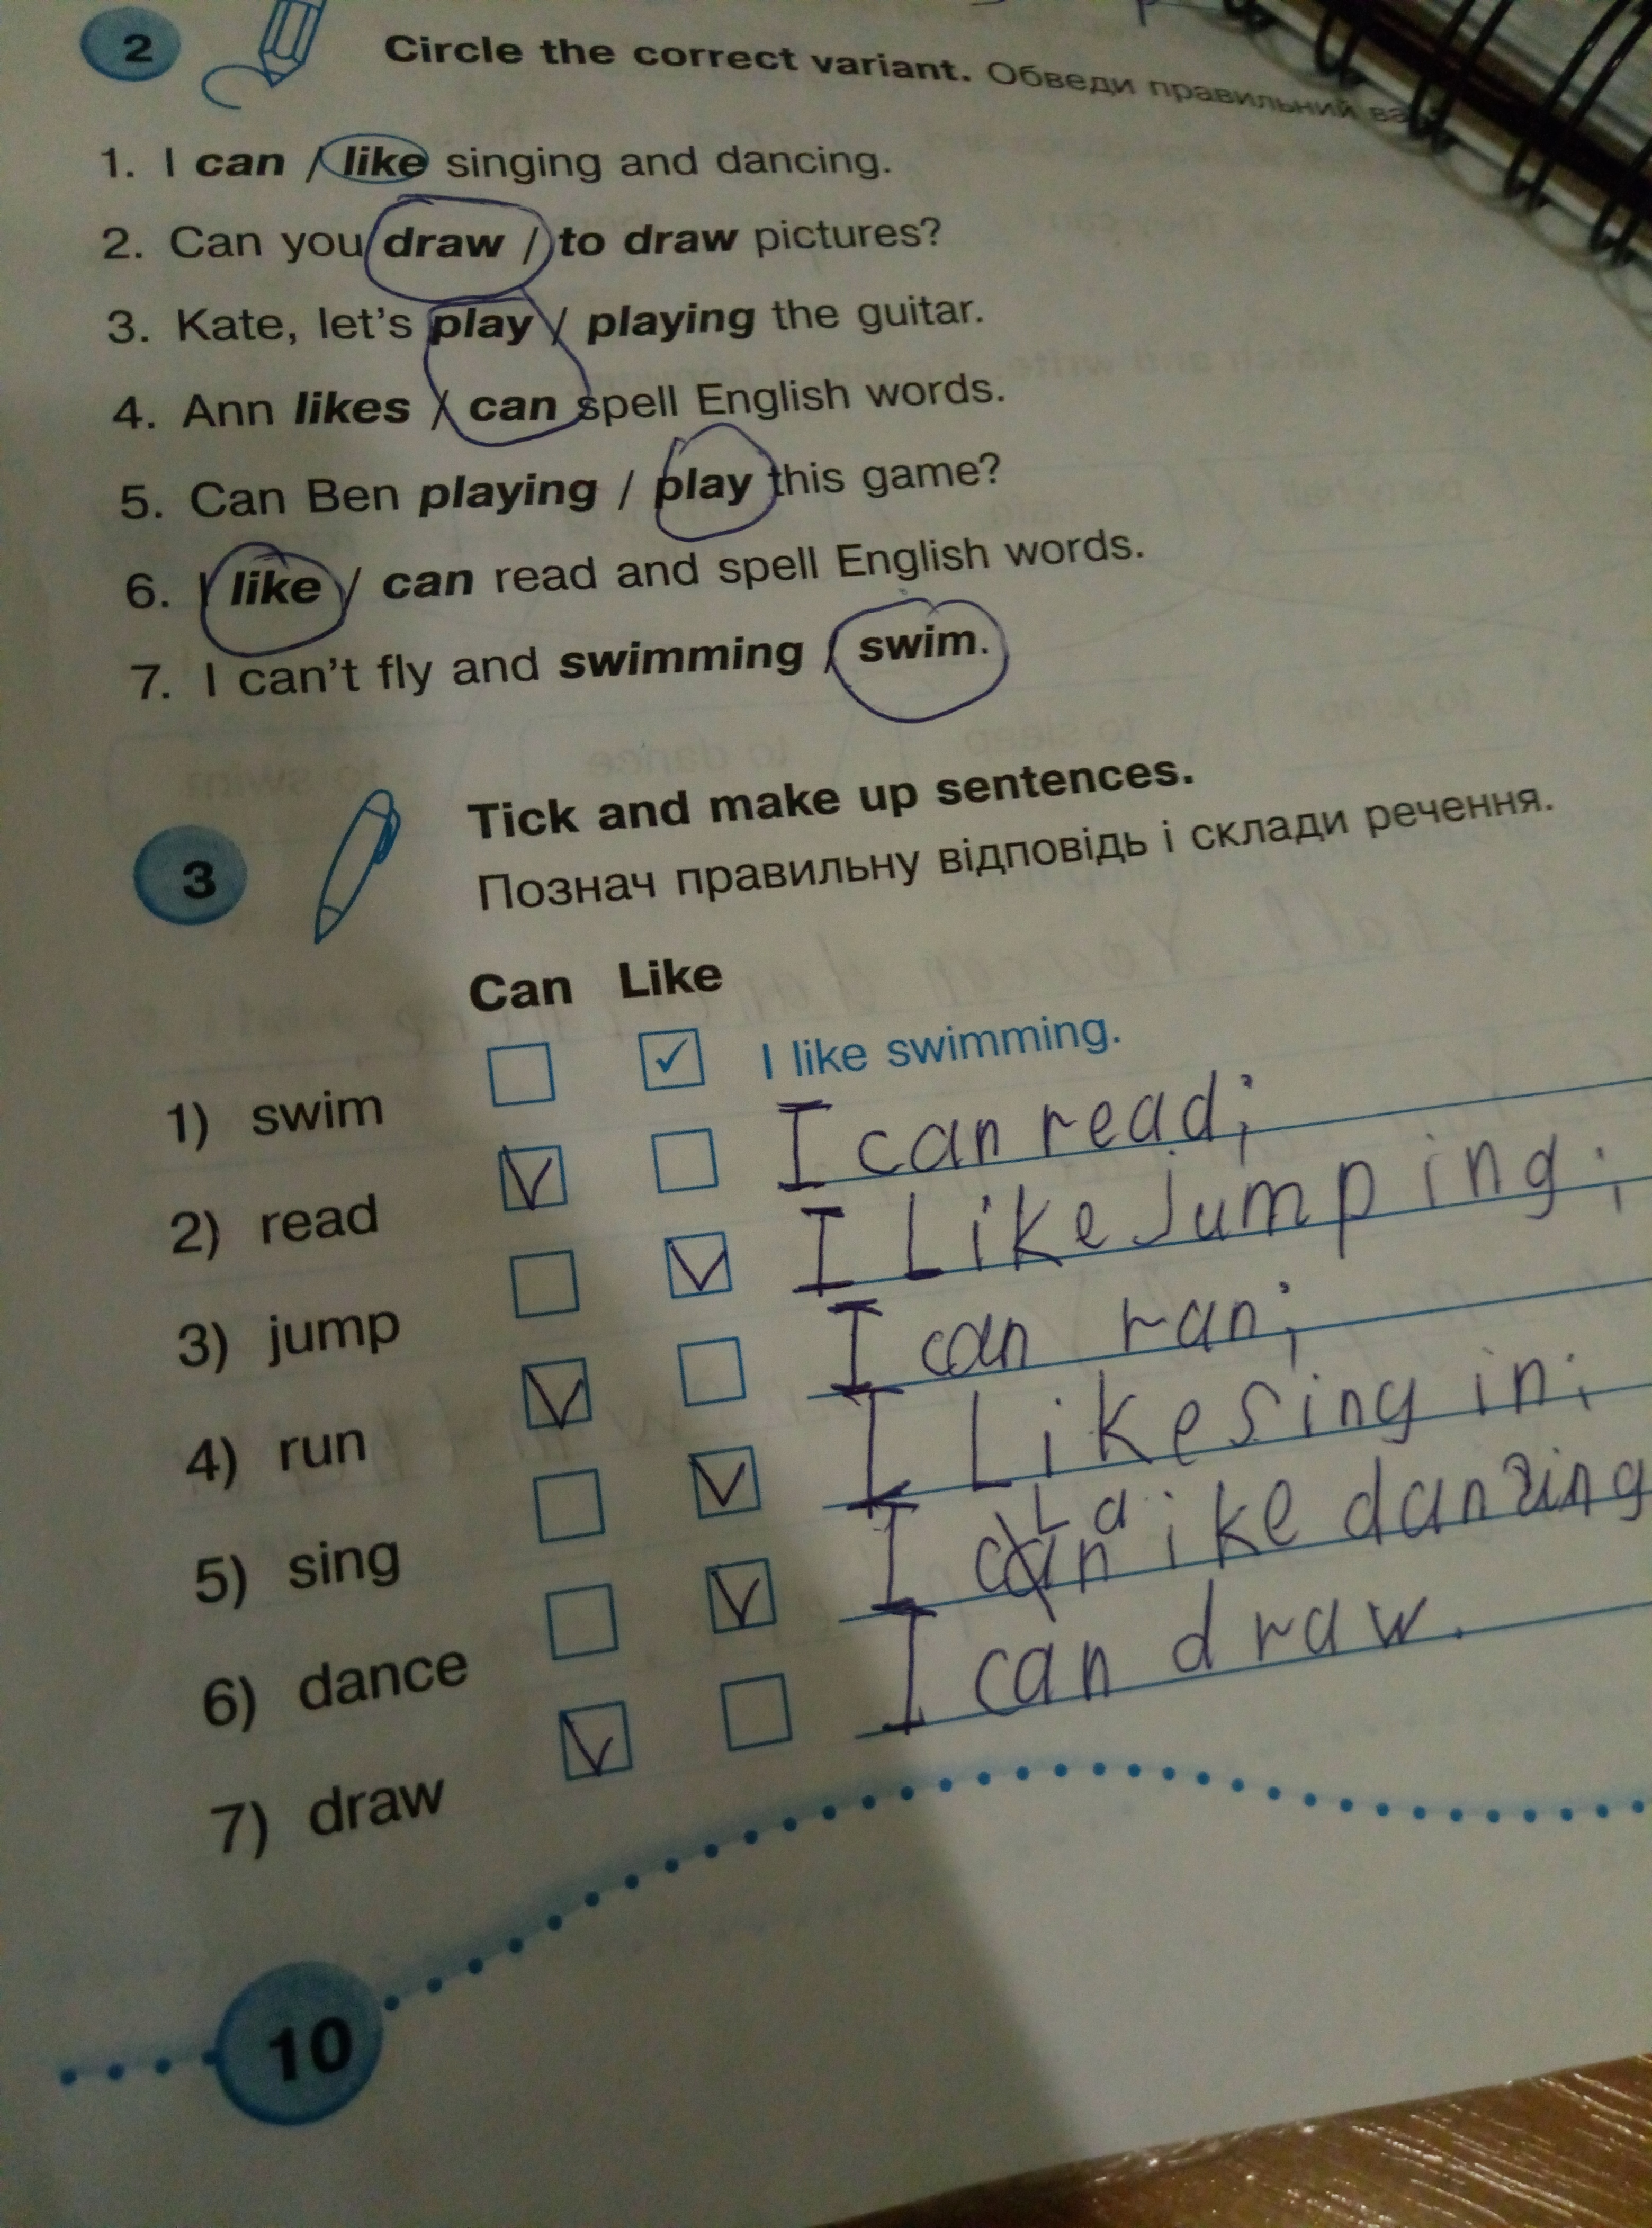 2 Circle the correct variant. Обведи правильний
1. I can / like singing and dancing.
2. Can you draw / to draw pictures?
3. Kate, let's play / playing the guitar.
4. Ann likes / can spell English words.
5. Can Ben playing / play this game?
6. I like / can read and spell English words.
7. I can't fly and swimming / swim.
3 Tick and make up sentences.
Познач правильну відповідь і склади речення.
Can Like
1) swim ✓ I like swimming.
2) read V I can read;
3) jump V I Like Jumping;
4) run V I can ran;
5) sing V I Like sing in;
6) dance V I Like danzing
7) draw V I can draw.
10